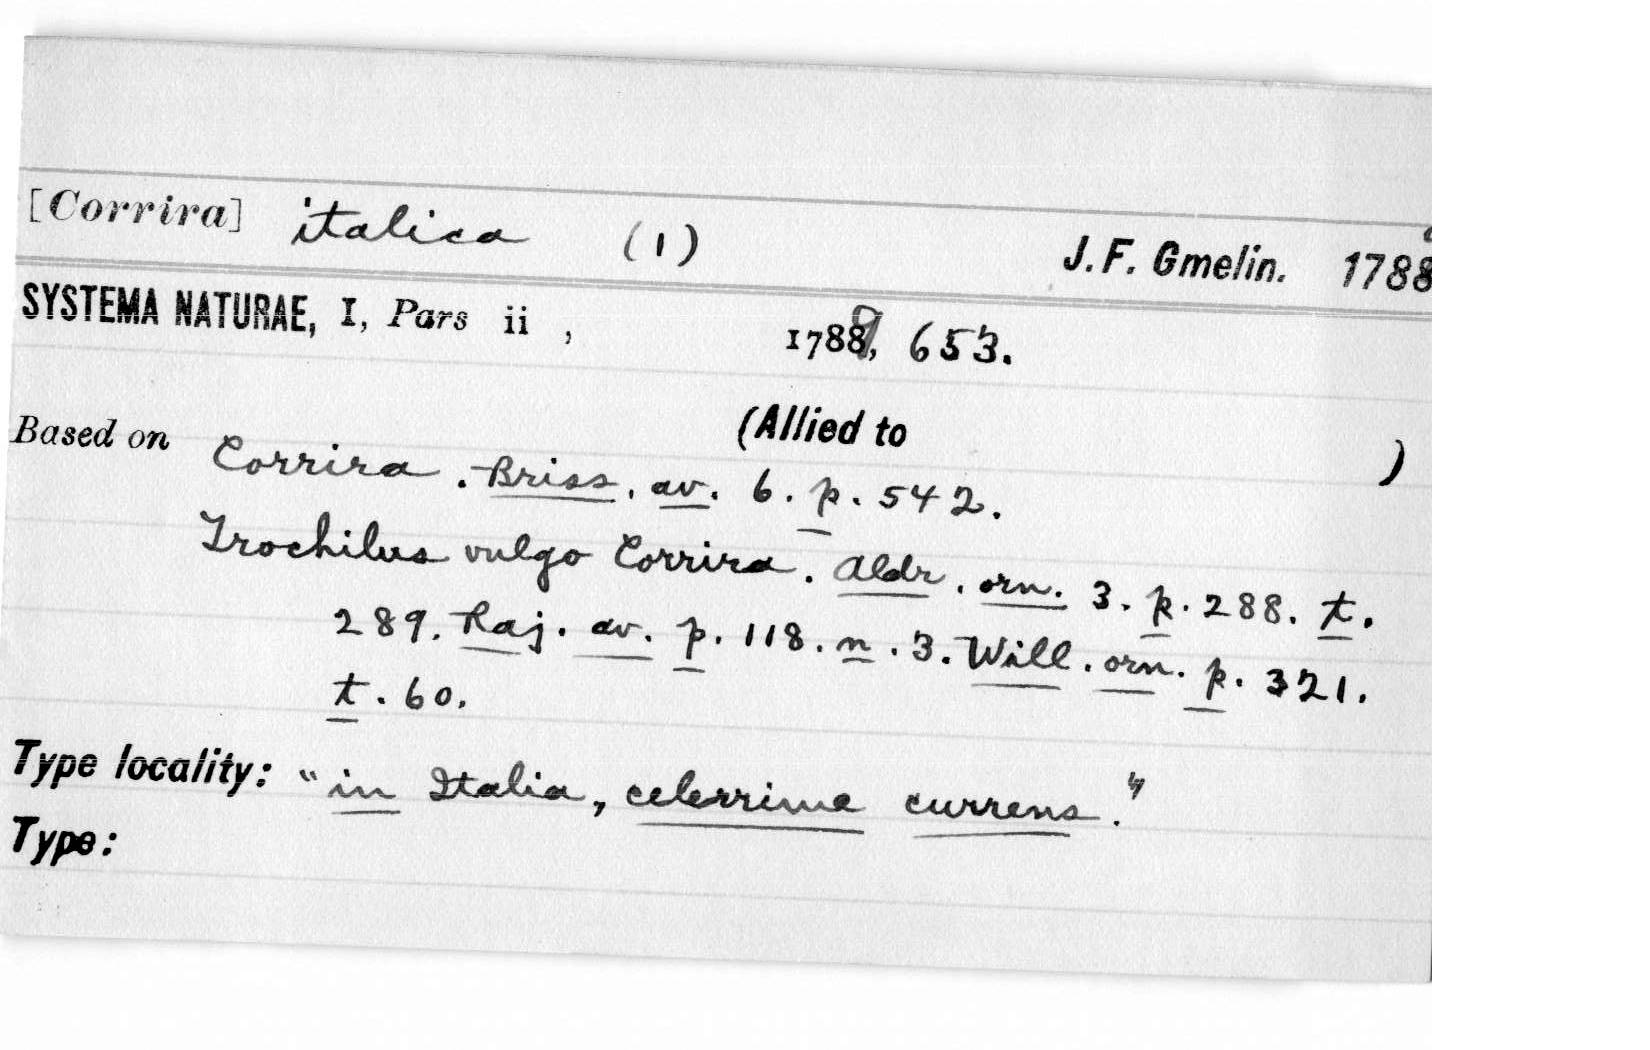 [Corrira] italica (1)
J. F. Gmelin. 1788
SYSTEMA NATURAE, I, Pars ii , 1789, 653.
Based on (Allied to )
Corrira . Briss. av. 6. p. 542.
Trochilus vulgo Corrira. Aldr. orn. 3. p. 288. t.
289. Raj. av. p. 118. n. 3. Will. orn. p. 321.
t. 60.
Type locality: "in Italia, celerrime currens."
Type: